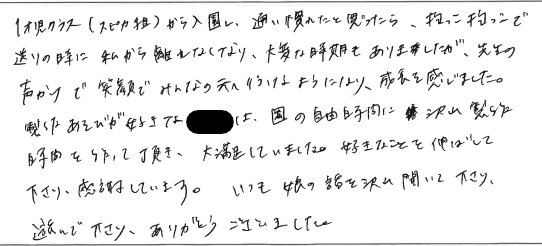 1才児クラス(スピカ組)から入園し、通い慣れたと思ったら、抱っこ抱っこで
送りの時に私から離れなくなり、大変な時期もありましたが、先生の
声かけで笑顔でみんなの元へ行けるようになり、成長を感じました。
製作あそびが好きな は、園の自由時間に沢山製作
時間を作って頂き、大満足していました。好きなことを伸ばして
下さり、感謝しています。 いつも娘の話を沢山聞いて下さり、
遊んで下さり、ありがとうございました。